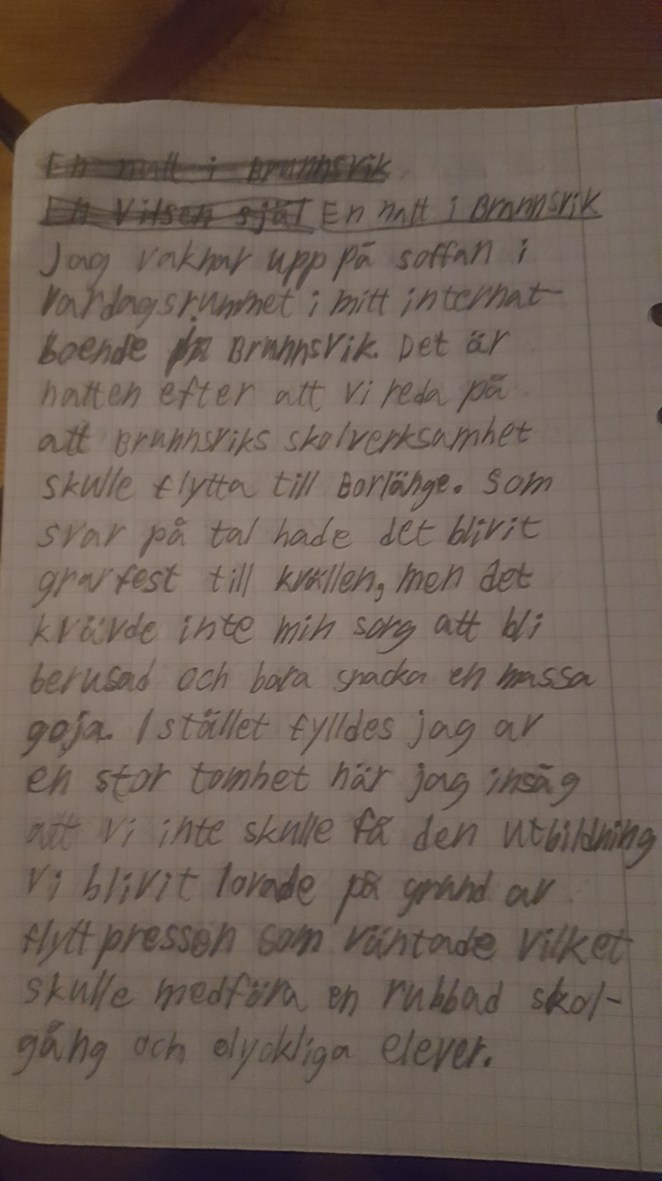 En natt i Brunnsvik
En Vilsen själ En natt i Brunnsvik
Jag vaknar upp på soffan i
vardagsrummet i mitt internat-
boende på Brunnsvik. Det är
natten efter att vi reda på
att Brunnsviks skolverksamhet
skulle flytta till Borlänge. Som
svar på tal hade det blivit
gravfest till kvällen, men det
krävde inte min sorg att bli
berusad och bara snacka en massa
goja. I stället fylldes jag av
en stor tomhet när jag insåg
att vi inte skulle få den utbildning
vi blivit lovade på grund av
flyttpressen som väntade vilket
skulle medföra en rubbad skol-
gång och olyckliga elever.